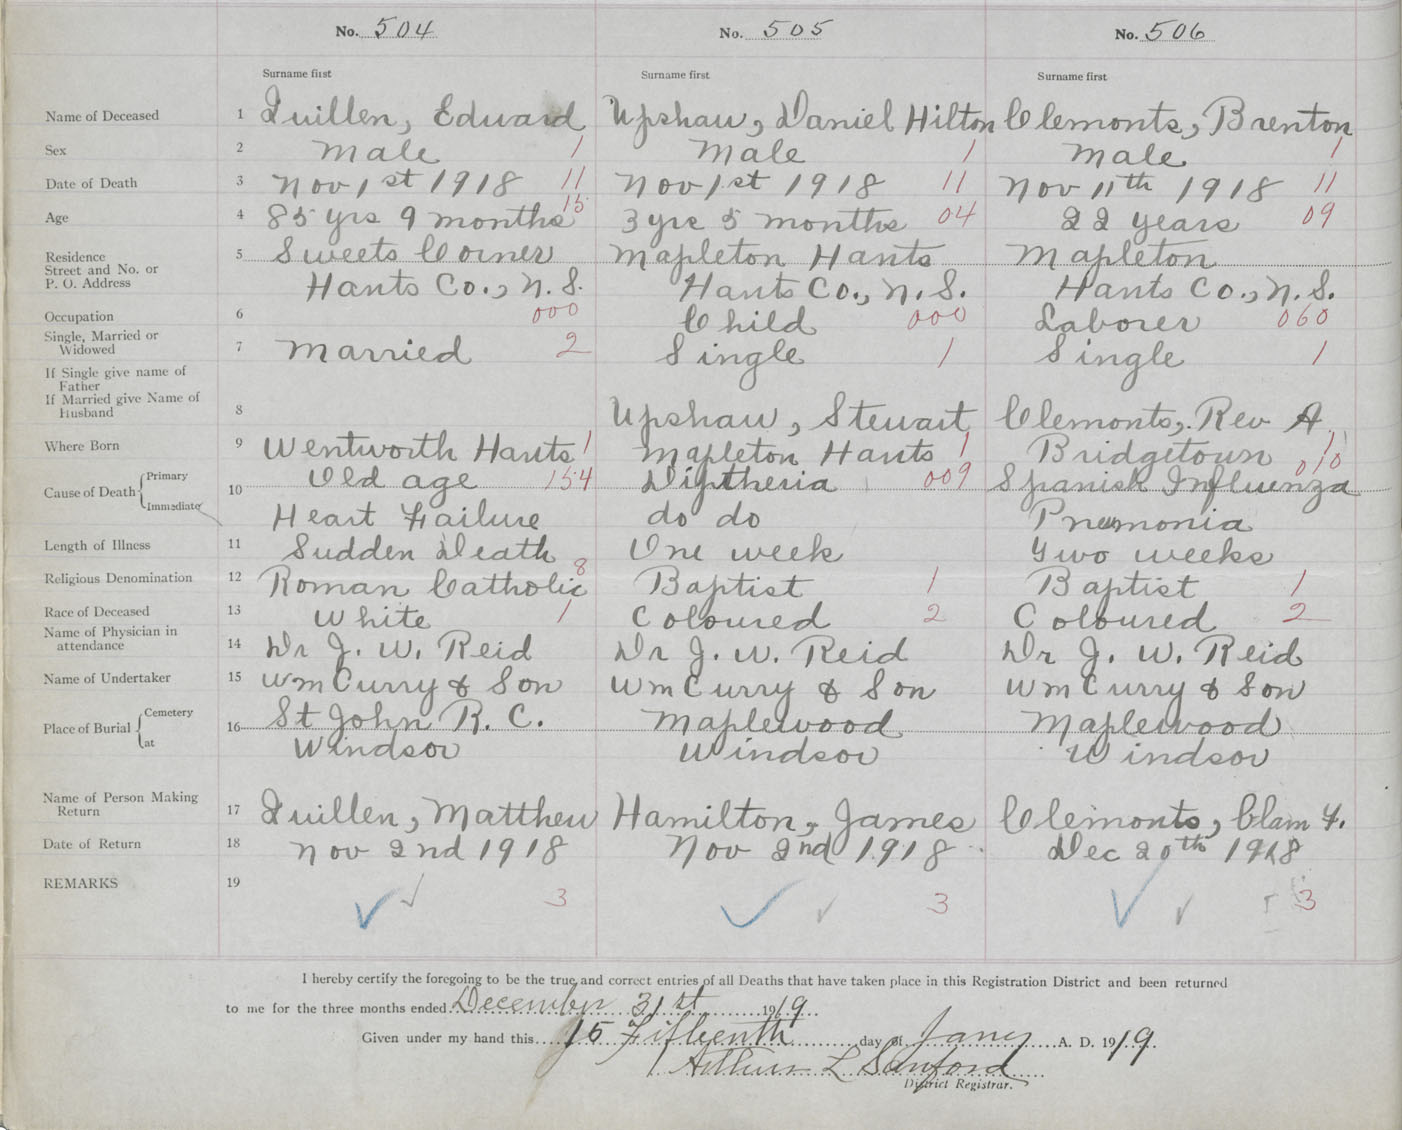 No. 504 No. 505 No. 506
Surname first Surname first Surname first
Name of Deceased 1 Quillen, Edward Upshaw, Daniel Hilton Clemonts, Brenton
Sex 2 Male 1 Male 1 Male 1
Date of Death 3 Nov 1st 1918 11 Nov 1st 1918 11 Nov 11th 1918 11
Age 4 85 yrs 9 months 15 3 yrs 5 months 04 22 years 09
Residence 5 Sweets Corner Mapleton Hants Mapleton
Street and No. or
P. O. Address Hants Co., N. S. Hants Co., N. S. Hants Co., N. S.
Occupation 6 000 Child 000 Laborer 060
Single, Married or
Widowed 7 Married 2 Single 1 Single 1
If Single give name of
Father
If Married give Name of
Husband 8 Upshaw, Stewart Clemonts, Rev A
Where Born 9 Wentworth Hants 1 Mapleton Hants 1 Bridgetown 1
Cause of Death Primary 10 Old age 154 Diptheria 009 Spanish Influenza 010
Immediate Heart Failure do do Pneumonia
Length of Illness 11 Sudden Death One week Two weeks
Religious Denomination 12 Roman Catholic 8 Baptist 1 Baptist 1
Race of Deceased 13 White 1 Coloured 2 Coloured 2
Name of Physician in
attendance 14 Dr J. W. Reid Dr J. W. Reid Dr J. W. Reid
Name of Undertaker 15 Wm Curry & Son Wm Curry & Son Wm Curry & Son
Place of Burial Cemetery 16 St John R. C. Maplewood Maplewood
at Windsor Windsor Windsor
Name of Person Making
Return 17 Quillen, Matthew Hamilton, James Clemonts, F.
Date of Return 18 Nov 2nd 1918 Nov 2nd 1918 Dec 20th 1918
REMARKS 19 3 3 3
I hereby certify the foregoing to be the true and correct entries of all Deaths that have taken place in this Registration District and been returned
to me for the three months ended December 31st 1919
Given under my hand this 15 Fifteenth day of Jany A. D. 1919
Arthur L Sanford
District Registrar.